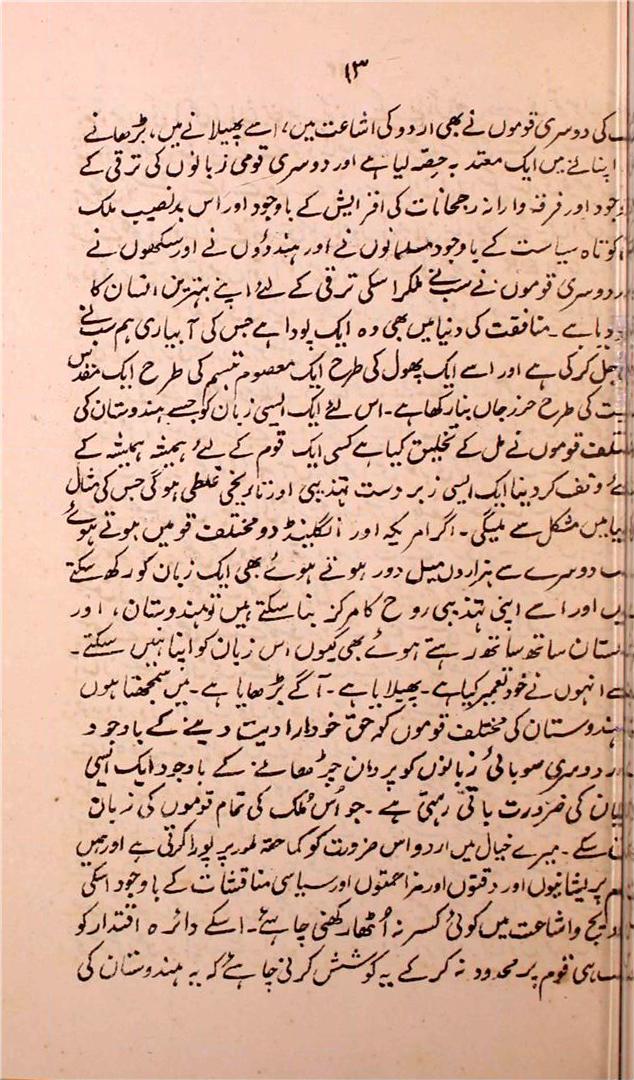 ۱۳
کی دوسری قوموں نے بھی اردو کی اشاعت میں، اسے پھیلانے میں، بڑھانے
اپنانے میں ایک معتد بہ حصہ لیا ہے اور دوسری قومی زبانوں کی ترقی کے
اور فرقہ وارانہ رجحانات کی افزایش کے باوجود اور اس بدنصیب ملک
کوتاہ سیاست کے باوجود مسلمانوں نے اور ہندوؤں نے اور سکھوں نے
دوسری قوموں نے سب نے ملکر اسکی ترقی کے لئے اپنے بہترین انسان کا
دیا ہے۔ منافقت کی دنیا میں بھی وہ ایک پودا ہے جس کی آبیاری ہم سب نے
کر کی ہے اور اسے ایک پھول کی طرح ایک معصوم تبسم کی طرح ایک مقدس
کی طرح حرزجاں بنا رکھا ہے۔ اس لئے ایک ایسی زبان کو جسے ہندوستان کی
قوموں نے مل کے تخلیق کیا ہے کسی ایک قوم کے لئے ہمیشہ ہمیشہ کے
وقف کر دینا ایک ایسی زبردست تہذیبی اور تاریخی غلطی ہوگی جس کی مثال
میں مشکل سے ملیگی۔ اگر امریکہ اور انگلینڈ دو مختلف قومیں ہوتے ہوئے
دوسرے سے ہزاروں میل دور ہوتے ہوئے بھی ایک زبان کو رکھ سکتے
اور اسے اپنی تہذیبی روح کا مرکز بنا سکتے ہیں تو ہندوستان، اور
ساتھ ساتھ رہتے ہوئے بھی کیوں اس زبان کو اپنا نہیں سکتے۔
انہوں نے خود تعمیر کیا ہے۔ پھیلایا ہے۔ آگے بڑھایا ہے۔ میں سمجھتا ہوں
ہندوستان کی مختلف قوموں کو حق خود ارادیت دینے کے باوجود
دوسری صوبائی زبانوں کو پروان چڑھانے کے باوجود ایک ایسی
کی ضرورت باقی رہتی ہے۔ جو اُس مُلک کی تمام قوموں کی زبان
سکے۔ میرے خیال میں اردو اس ضرورت کو کماحقہ طور پر پورا کرتی ہے اور ہمیں
پریشانیوں اور دقتوں اور مزاحمتوں اور سیاسی مناقشات کے باوجود اسکی
و اشاعت میں کوئی کسر نہ اُٹھا رکھنی چاہئے۔ اسکے دائرہ اقتدار کو
ہی قوم پر محدود نہ کر کے یہ کوشش کرنی چاہئے کہ یہ ہندوستان کی